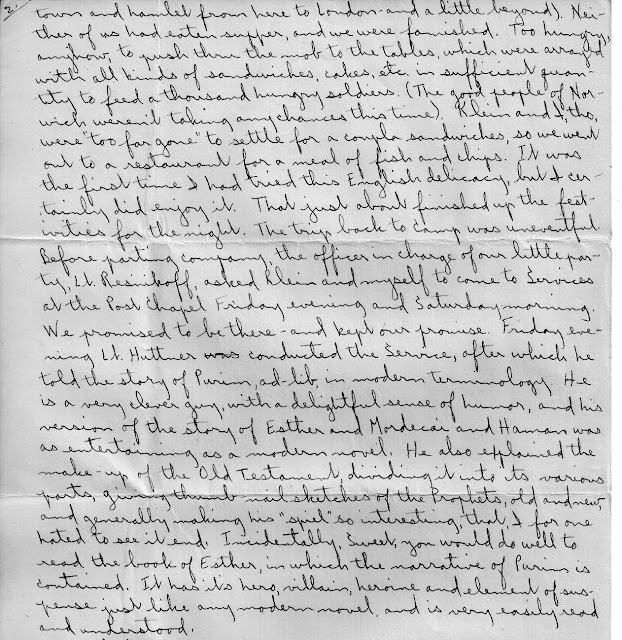 2.
town and hamlet from here to London and a little beyond). Nei-
ther of us had eaten supper, and we were famished. Too hungry,
anyhow, to push thru the mob to the tables, which were arrayed
with all kinds of sandwiches, cakes, etc. in sufficient quan-
tity to feed a thousand hungry soldiers. (The good people of Nor-
wich weren't taking any chances this time). Klein and I, tho,
were "too far gone" to settle for a coupla sandwiches, so we went
out to a restaurant for a meal of fish and chips. It was
the first time I had tried this English delicacy, but I cer-
tainly did enjoy it. That just about finished up the fest-
ivities for the night. The trip back to camp was uneventful
Before parting company, the officer in charge of our little par-
ty, Lt. Resnikoff, asked Klein and myself to come to Services
at the Post Chapel Friday evening and Saturday morning.
We promised to be there - and kept our promise. Friday eve-
ning Lt. Huttner was conducted the Service, after which he
told the story of Purim, ad-lib, in modern terminology. He
is a very clever guy, with a delightful sense of humor, and his
version of the story of Esther and Mordecai and Haman was
as entertaining as a modern novel. He also explained the
make-up of the Old Testament dividing it into its various
parts, giving thumb-nail sketches of the Prophets, old and new,
and generally making his "spiel" so interesting, that I for one
hated to see it end. Incidentally, Sweet, you would do well to
read the book of Esther, in which the narrative of Purim is
contained. It has it's hero, villain, heroine and element of sus-
pense just like any modern novel, and is very easily read
and understood.